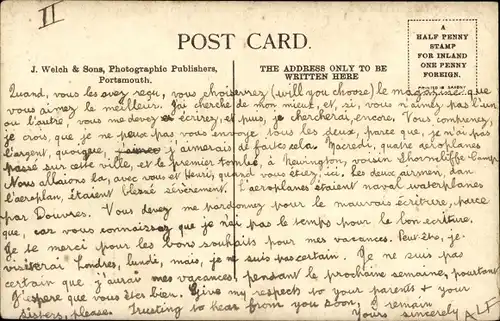 II
POST CARD.
A
HALF PENNY
STAMP
FOR INLAND
ONE PENNY
FOREIGN.
J. Welch & Sons, Photographic Publishers,
Portsmouth.
THE ADDRESS ONLY TO BE
WRITTEN HERE
Quand, vous les avez reçu, vous choiserrez (will you choose) le magasine que
vous aimez le meilleur. J'ai cherché de mon mieux, et, si, vous n'aimez pas l'un
ou l'autre, vous me devez écrirez, et puis, je chercherai, encore. Vous comprenez,
je crois, que je ne peux pas vous envoye tous les deux, parce que, je n'ai pas
l'argent, quoique, j'aimerais de faite cela. Macredi, quatre aeroplanes
passé sur cette ville, et le premier tombé, à Newington, voisin Shorncliffe Camp
Nous allions la, avec vous et Henri, quand vous étiez, ici. Les deux airmen, dan
l'aeroplan, étaient blessé sévèrement. L'aeroplanes étaient naval waterplanes
par Douvres. Vous devez me pardonnez pour le mauvais écriture, parce
que, car vous connaissez que je n'ai pas le temps pour le bon ecriture.
Je te merci pour les bons souhaits pour mes vacances. Peut-être, je.
visiterai Londres, lundi, mais, je ne suis pas certain. Je ne suis pas
certain que j'aurai mes vacances, pendant le prochaine semaine, pourtant
J'espère que vous êtes bien. Give my respects to your parents &
sisters, please. Trusting to hear from you soon, I remain
Yours sincerely ALF